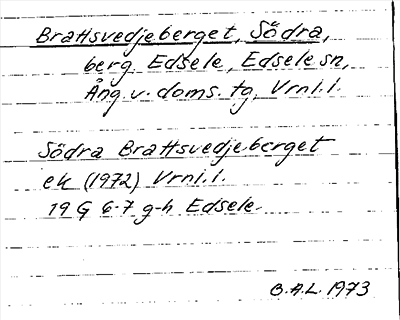 Brattsvedjeberget, Södra,
berg, Edsele, Edsele sn,
Ång. v. doms. tg, Vrnl. l.
Södra Brattsvedjeberget
ek (1972) Vrnl. l.
19 G 6-7 g-h Edsele.
B.A.L. 1973